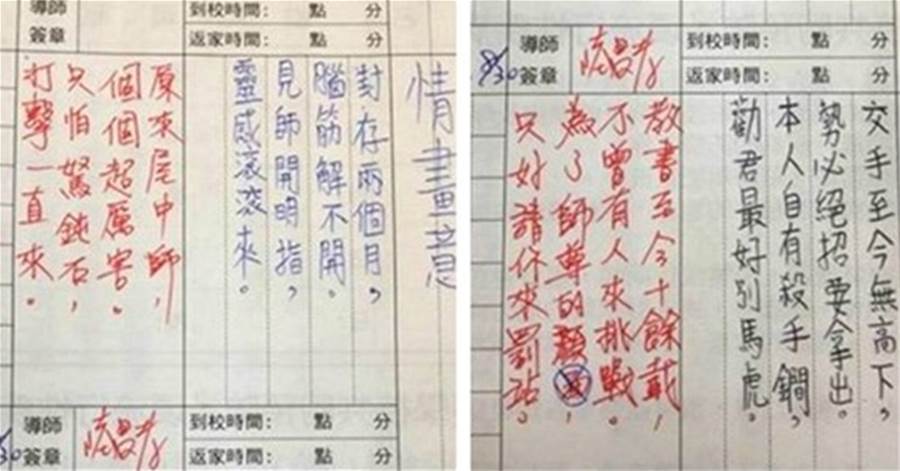 導師
簽章
到校時間： 點 分
返家時間： 點 分
情畫意
封存兩個月，
腦筋解不開。
見師開明指，
靈感滾滾來。
原來尾中師，
個個超厲害。
只怕駑鈍石，
打擊一直來。
導師
簽章
到校時間： 點 分
返家時間： 點 分
8/30
導師
簽章
到校時間： 點 分
返家時間： 點 分
交手至今無高下，
勢必絕招要拿出。
本人自有殺手鐧，
勸君最好別馬虎。
教書至今十餘載，
不曾有人來挑戰。
為了師尊的顏面，
只好請你來罰站。